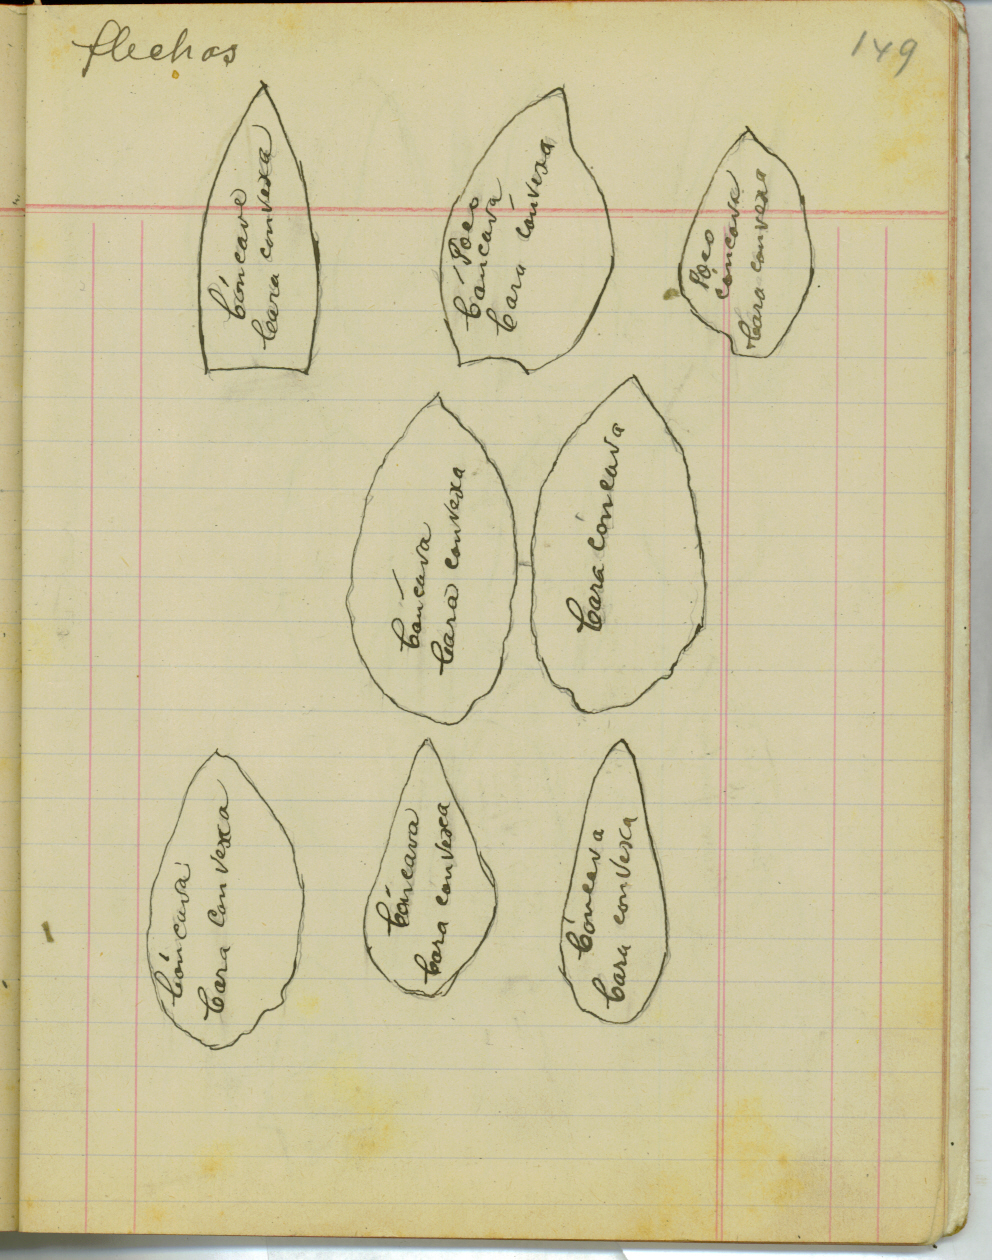 flechas
149
Cóncave
Cara convexa
Poco
Cóncava
Cara cónvexa
Poco
cóncava
Cara convexa
Cóncava
Cara convexa
Cara cóncava
Cóncava
Cara Convexa
Cóncava
Cara convexa
Cóncava
Cara convexa